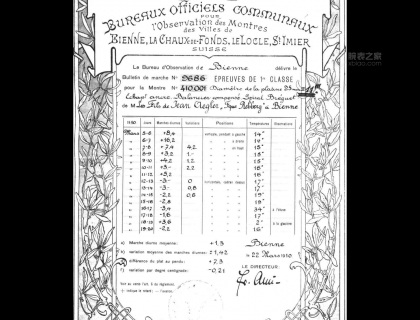 BUREAUX OFFICIELS COMMUNAUX
POUR
l'Observation des Montres
des Villes de
BIENNE, LA CHAUX-DE-FONDS, LE LOCLE, ST IMIER
SUISSE
Le Bureau d'Observation de Bienne délivre le
Bulletin de marche No 9686 ÉPREUVES DE 1re CLASSE
pour la Montre No 410.001 Diamètre de la platine 25 mm
ancre, Balancier compensé, Spiral Breguet
de M. Les Fils de Jean Aegler, Rebberg, à Bienne
1910 Marches diurnes Variations Positions Températures Observations
Mars 5-6 +8,4 14°
6-7 +16,2 14°
7-8 +7,4 4,2 14°
8-9 +3,2 1.- 15°
9-10 +4,2 1,2 15°
10-11 +3.- 2,2 16°
11-12 +5,2 16°
12-13 -3.- 0 17°
13-14 -3.- 0,8 17°
14-15 -2,2 0,6 17°
15-16 -2,8 19°
16-17 -3,4 34° à l'étuve
17-18 -1,6 17°
18-19 +3,6 2° à la glacière
19-20 -2,2 16°
a) Marche diurne moyenne: +1,3
b) variation moyenne des marches diurnes: ±1,42
c) différence du plat au pendu: +7,3
d) variation par degré centigrade: -0,21
Bienne
le 22 Mars 1910
LE DIRECTEUR: